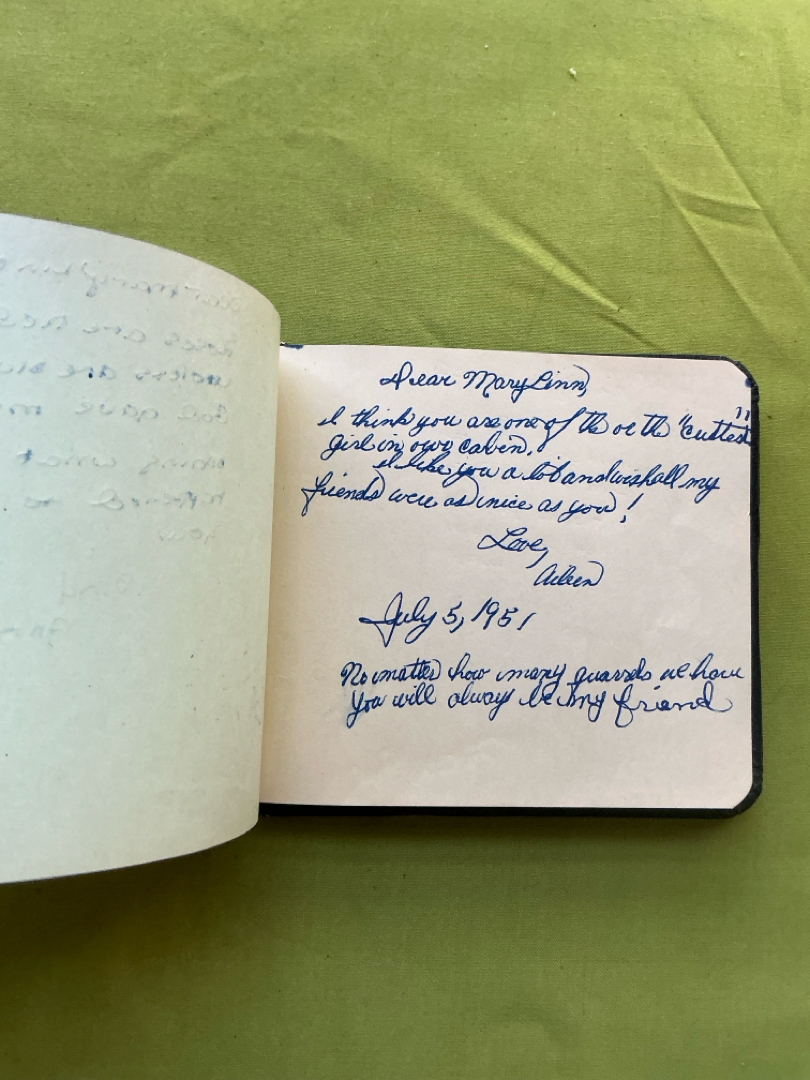 Dear Mary Linn,
I think you are one of the or the "cuttest"
girl in our cabin.
I like you a lot and wish all my
friends were as nice as you!
Love,
Aileen
July 5, 1951
No matter how many quarrels we have
You will always be my friend